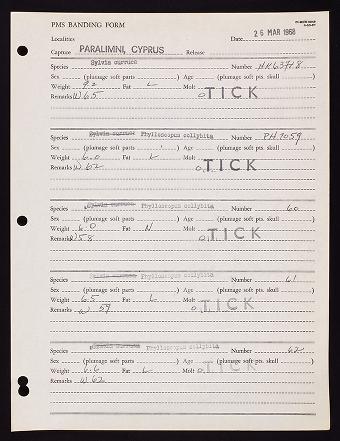 PMS BANDING FORM
Localities Date 26 MAR 1968
Capture PARALIMNI, CYPRUS Release
Species Sylvia curruca Number HK63718
Sex (plumage soft parts ) Age (plumage soft pts. skull )
Weight 9.2 Fat L Molt
Remarks W 65 O TICK
Species Sylvia curruca Phylloscopus collybita Number PH7059
Sex (plumage soft parts ) Age (plumage soft pts. skull )
Weight 6.0 Fat L Molt
Remarks W 62 O TICK
Species Sylvia curruca Phylloscopus collybita Number 60
Sex (plumage soft parts ) Age (plumage soft pts. skull )
Weight 6.0 Fat N Molt
Remarks W 58 O TICK
Species Sylvia curruca Phylloscopus collybita Number 61
Sex (plumage soft parts ) Age (plumage soft pts. skull )
Weight 6.5 Fat L Molt
Remarks W 59 O TICK
Species Sylvia curruca Phylloscopus collybita Number 62
Sex (plumage soft parts ) Age (plumage soft pts. skull )
Weight 6.6 Fat L Molt O TICK
Remarks W 62